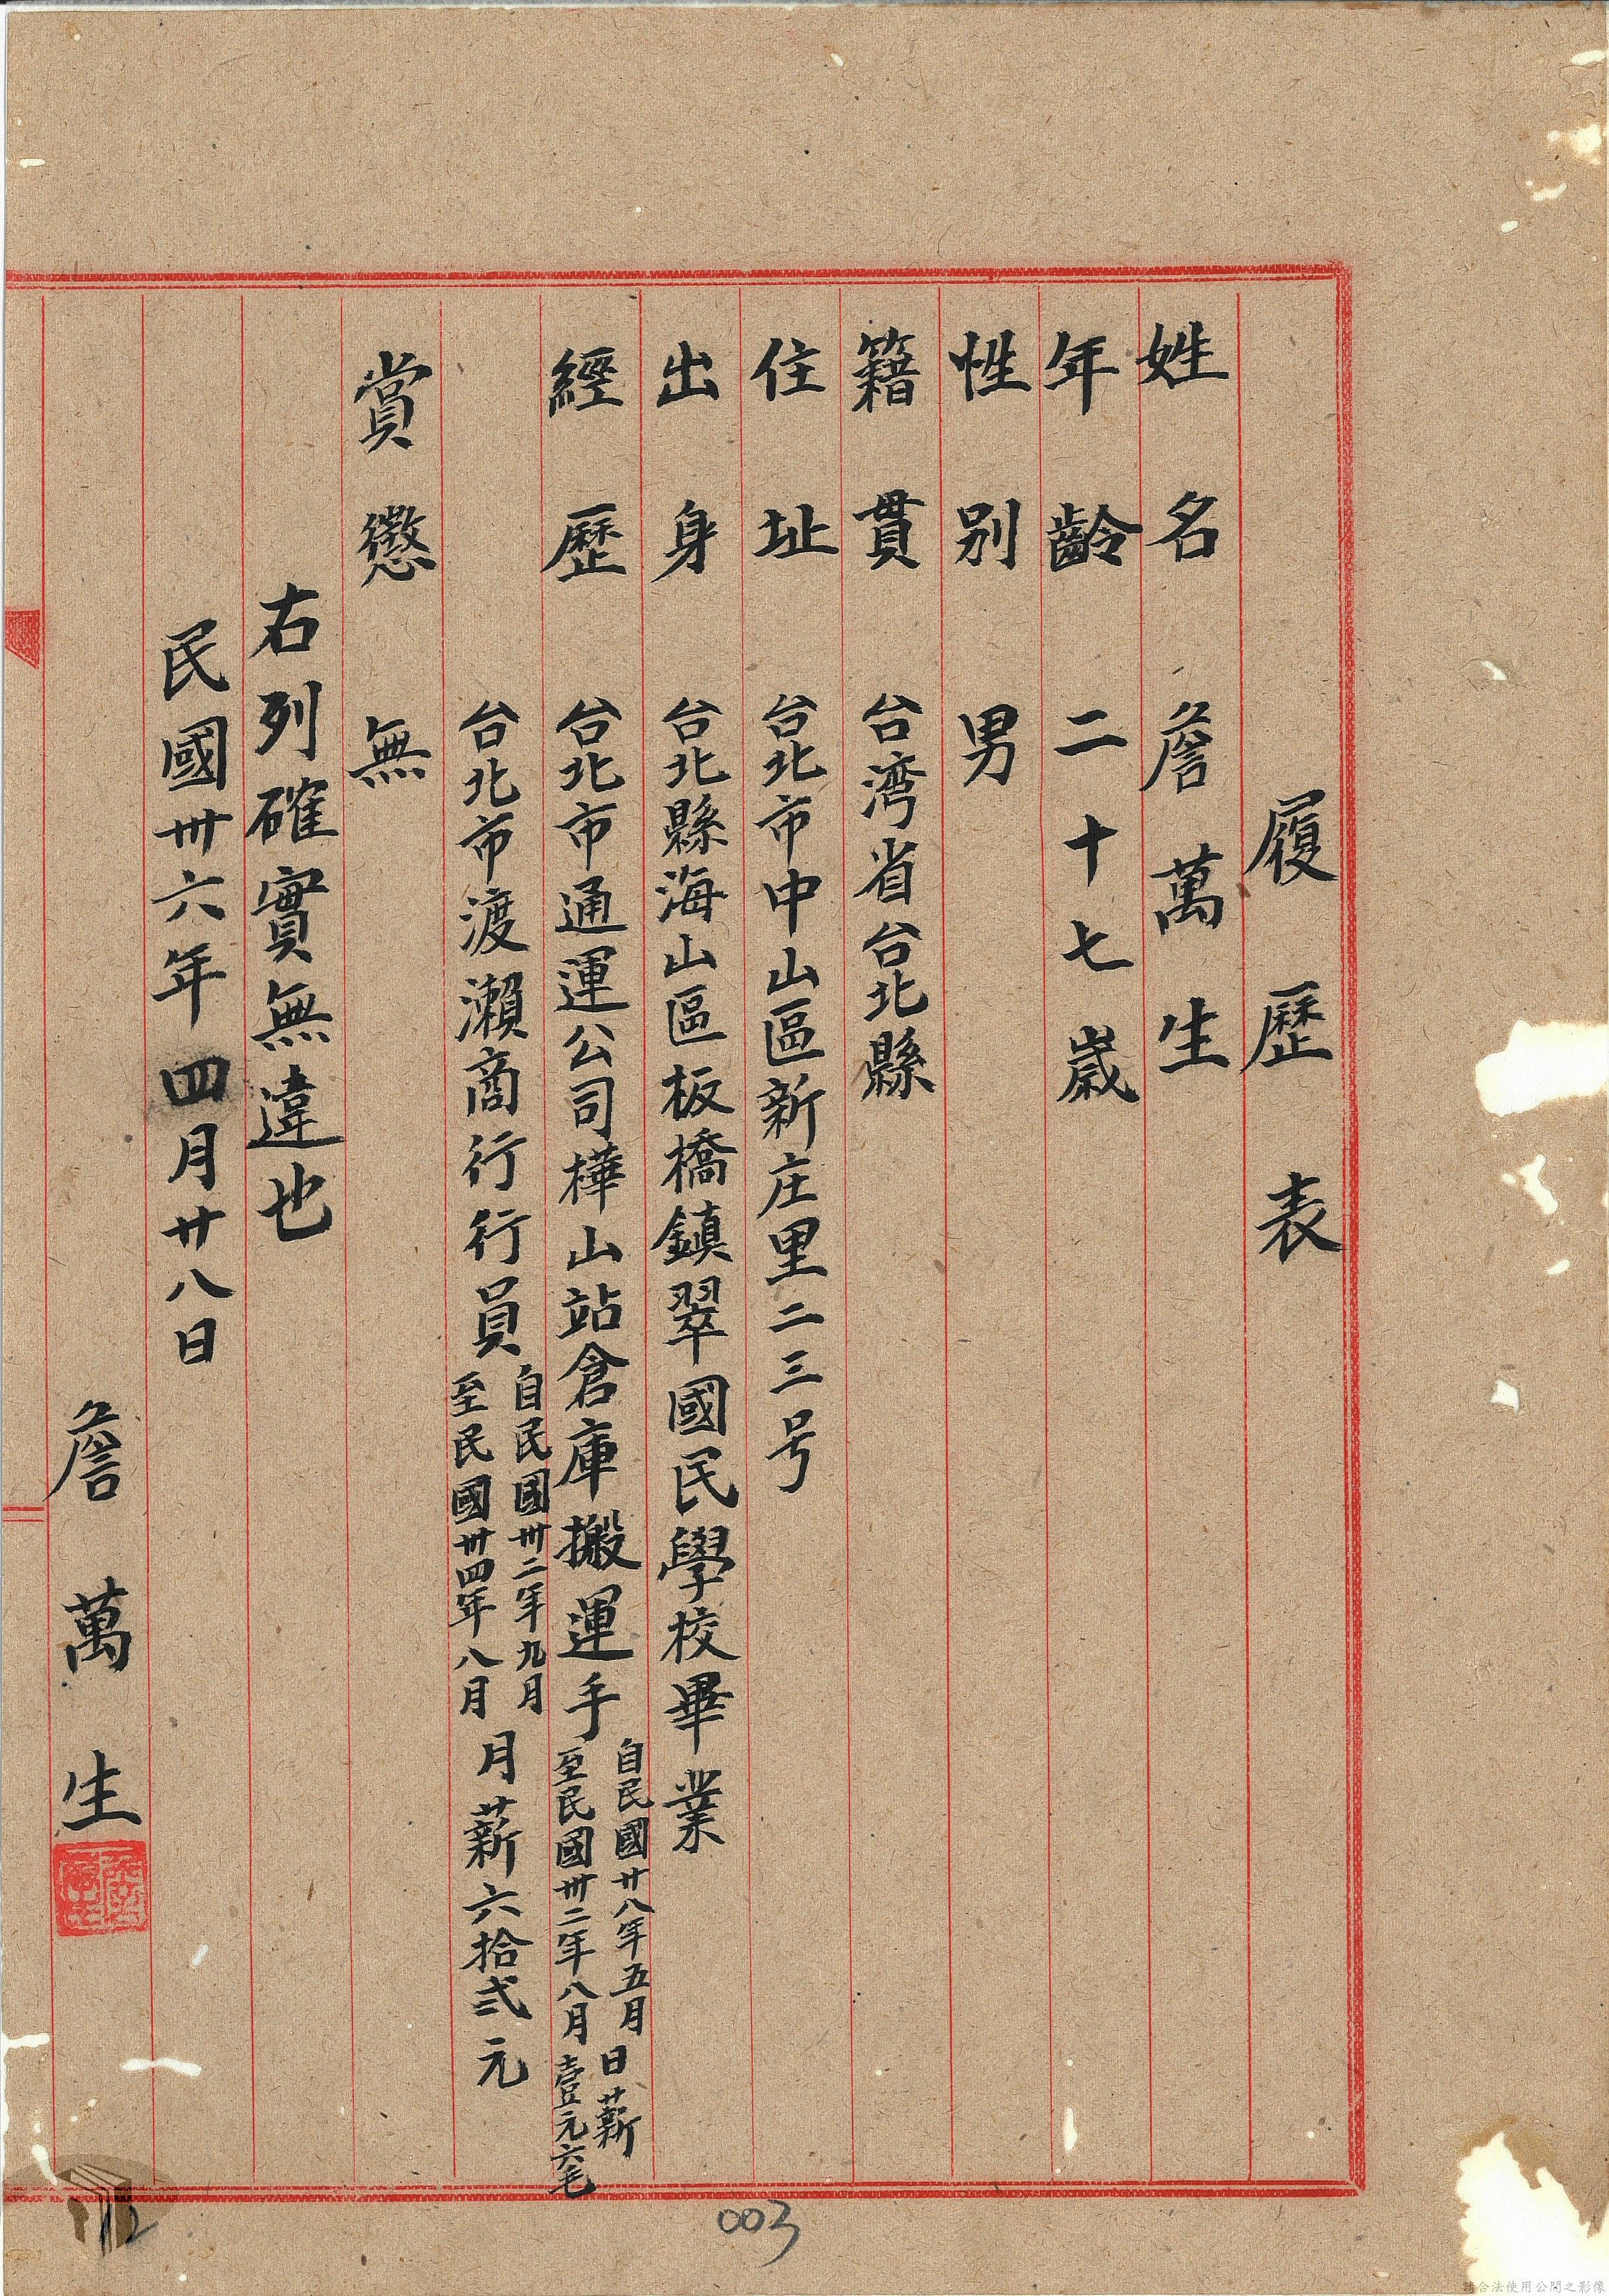 履歷表
姓名 詹萬生
年齡 二十七歲
性別 男
籍貫 台湾省台北縣
住址 台北市中山區新庄里二三号
出身 台北縣海山區板橋鎮翠國民學校畢業
經歷 台北市通運公司樺山站倉庫搬運手
自民國廿八年五月 日薪
至民國卅二年八月 壹元六毛
台北市渡瀨商行行員
自民國卅二年九月
至民國卅四年八月
月薪六拾弍元
賞懲 無
右列確實無違也
民國卅六年四月廿八日
詹萬生
003
合法使用公開之影像